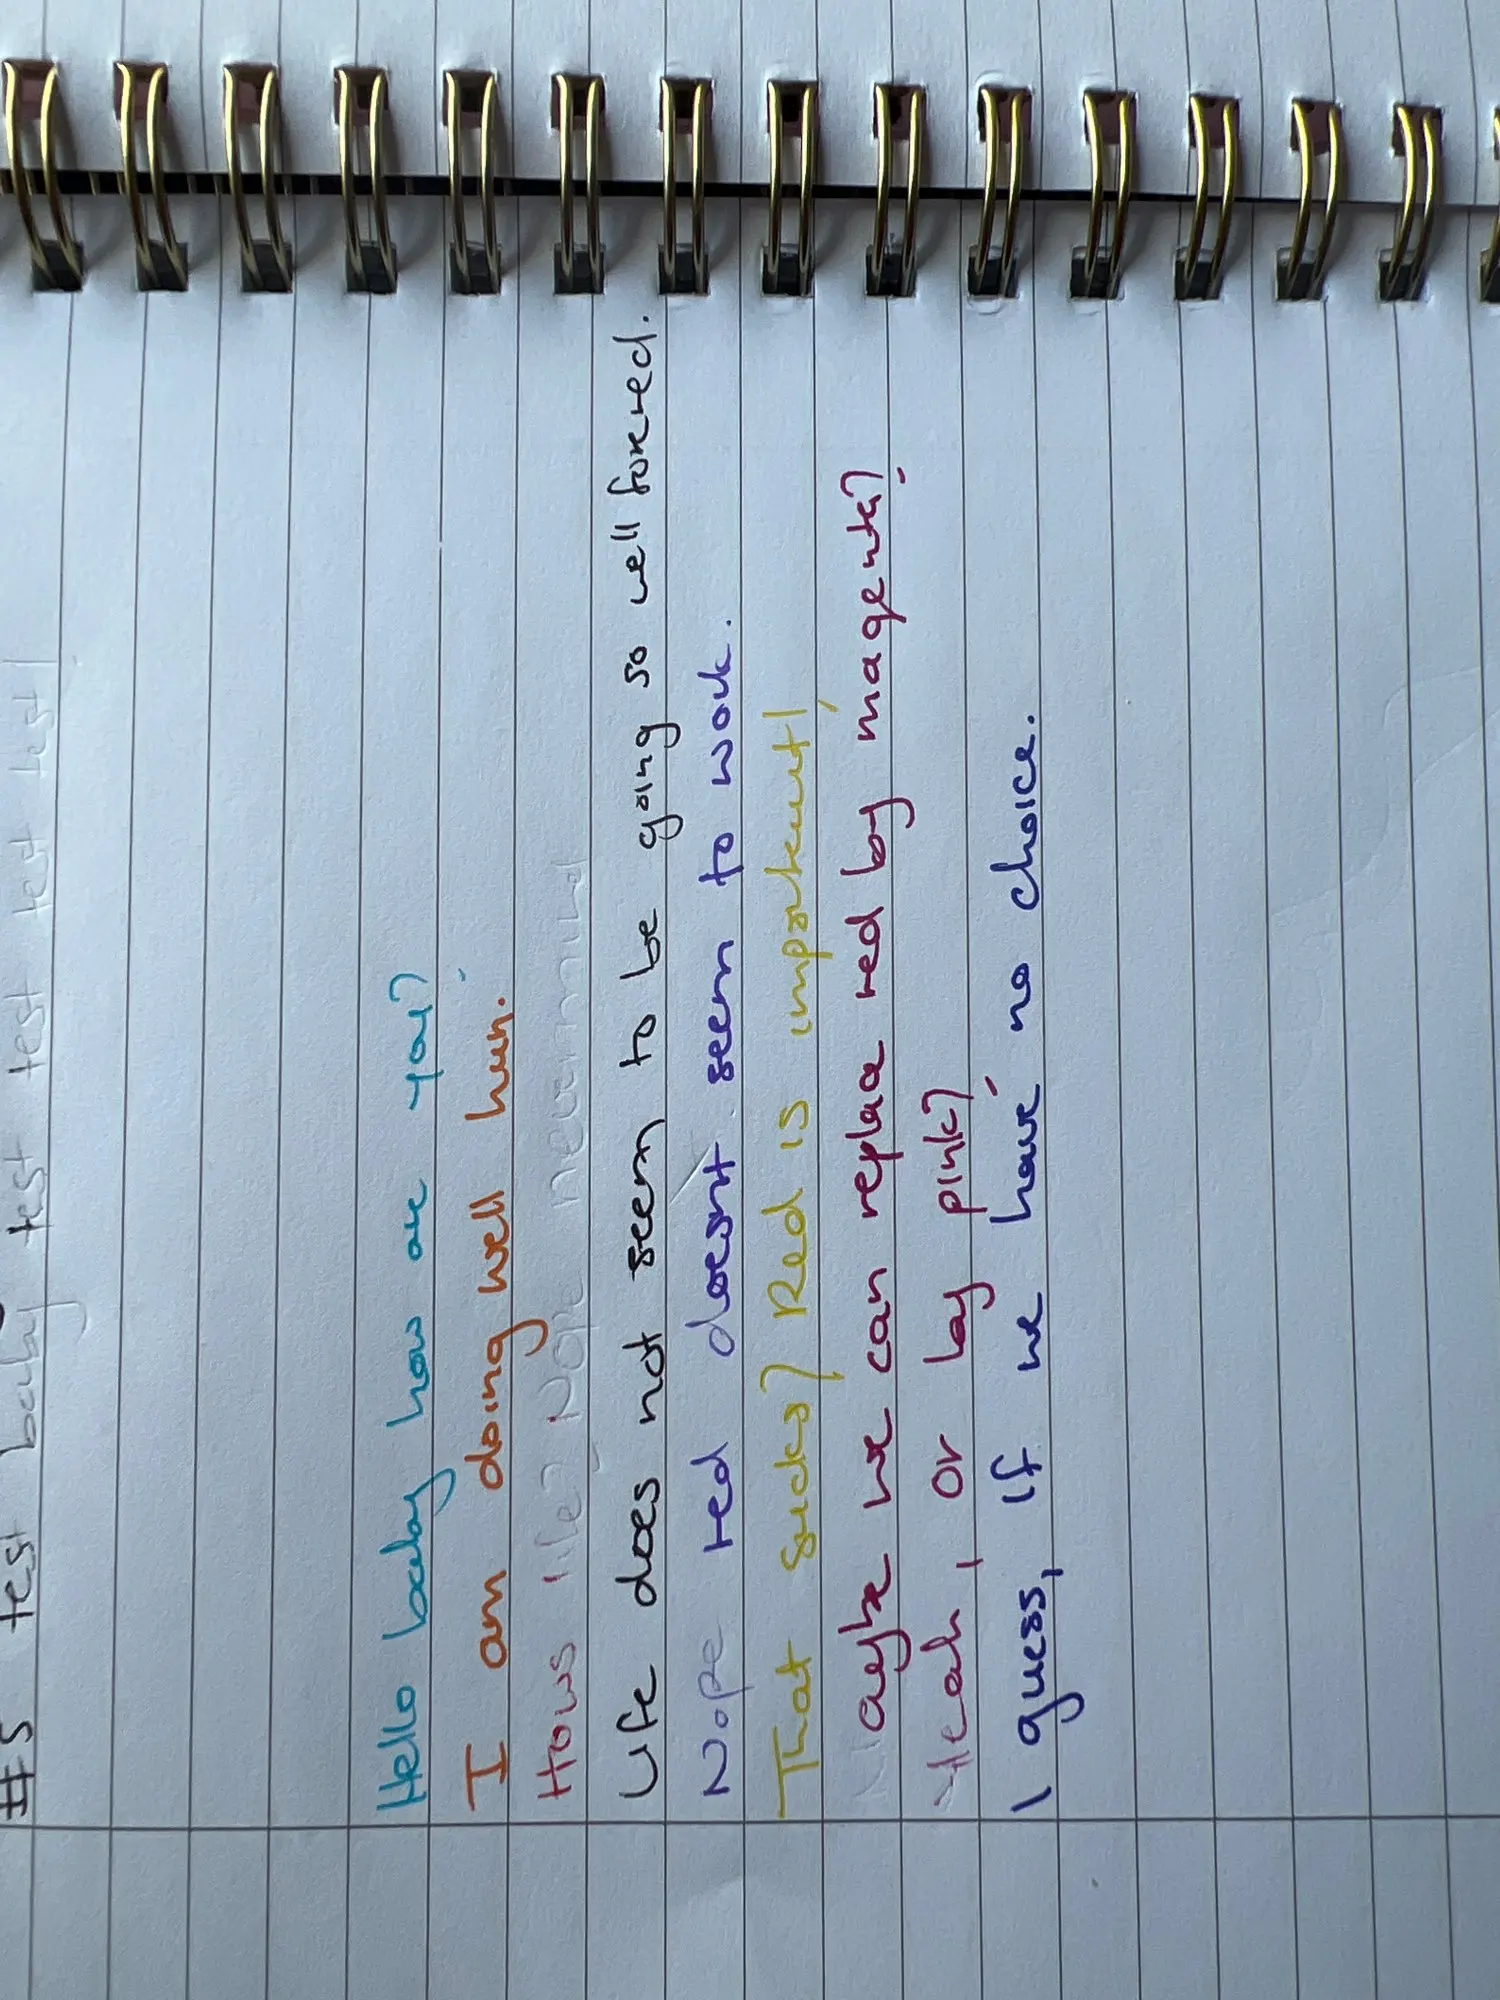 #5 test baby test test test test test
Hello baby how are you?
I am doing well hun.
Hows life? Nope nevermind
Life does not seem to be going so well for red.
Nope red doesnt seem to work.
That sucks? Red is important!
Maybe we can replace red by magenta?
Yeah, or lay pink?
I guess, if we have no choice.